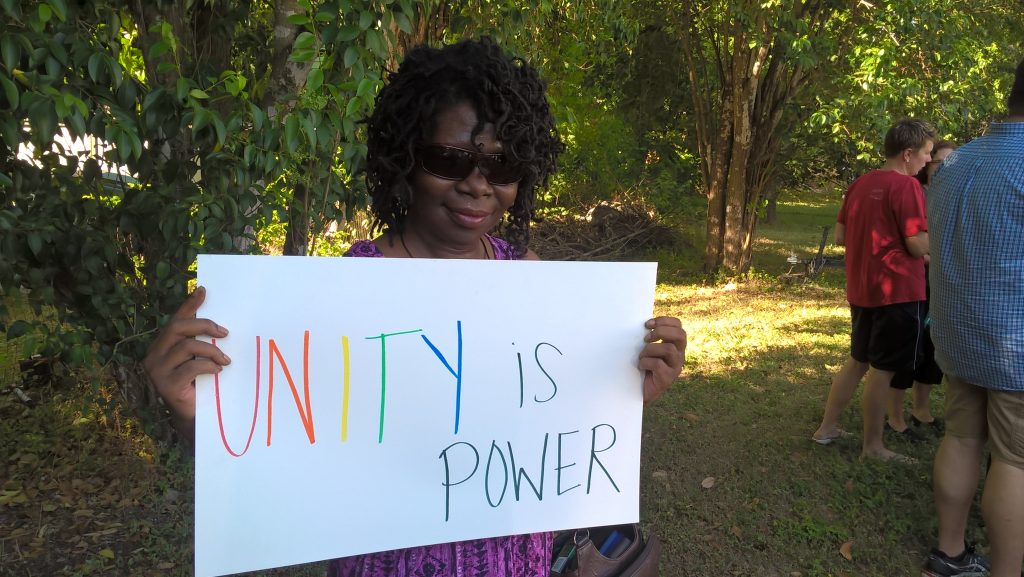 UNITY is
POWER